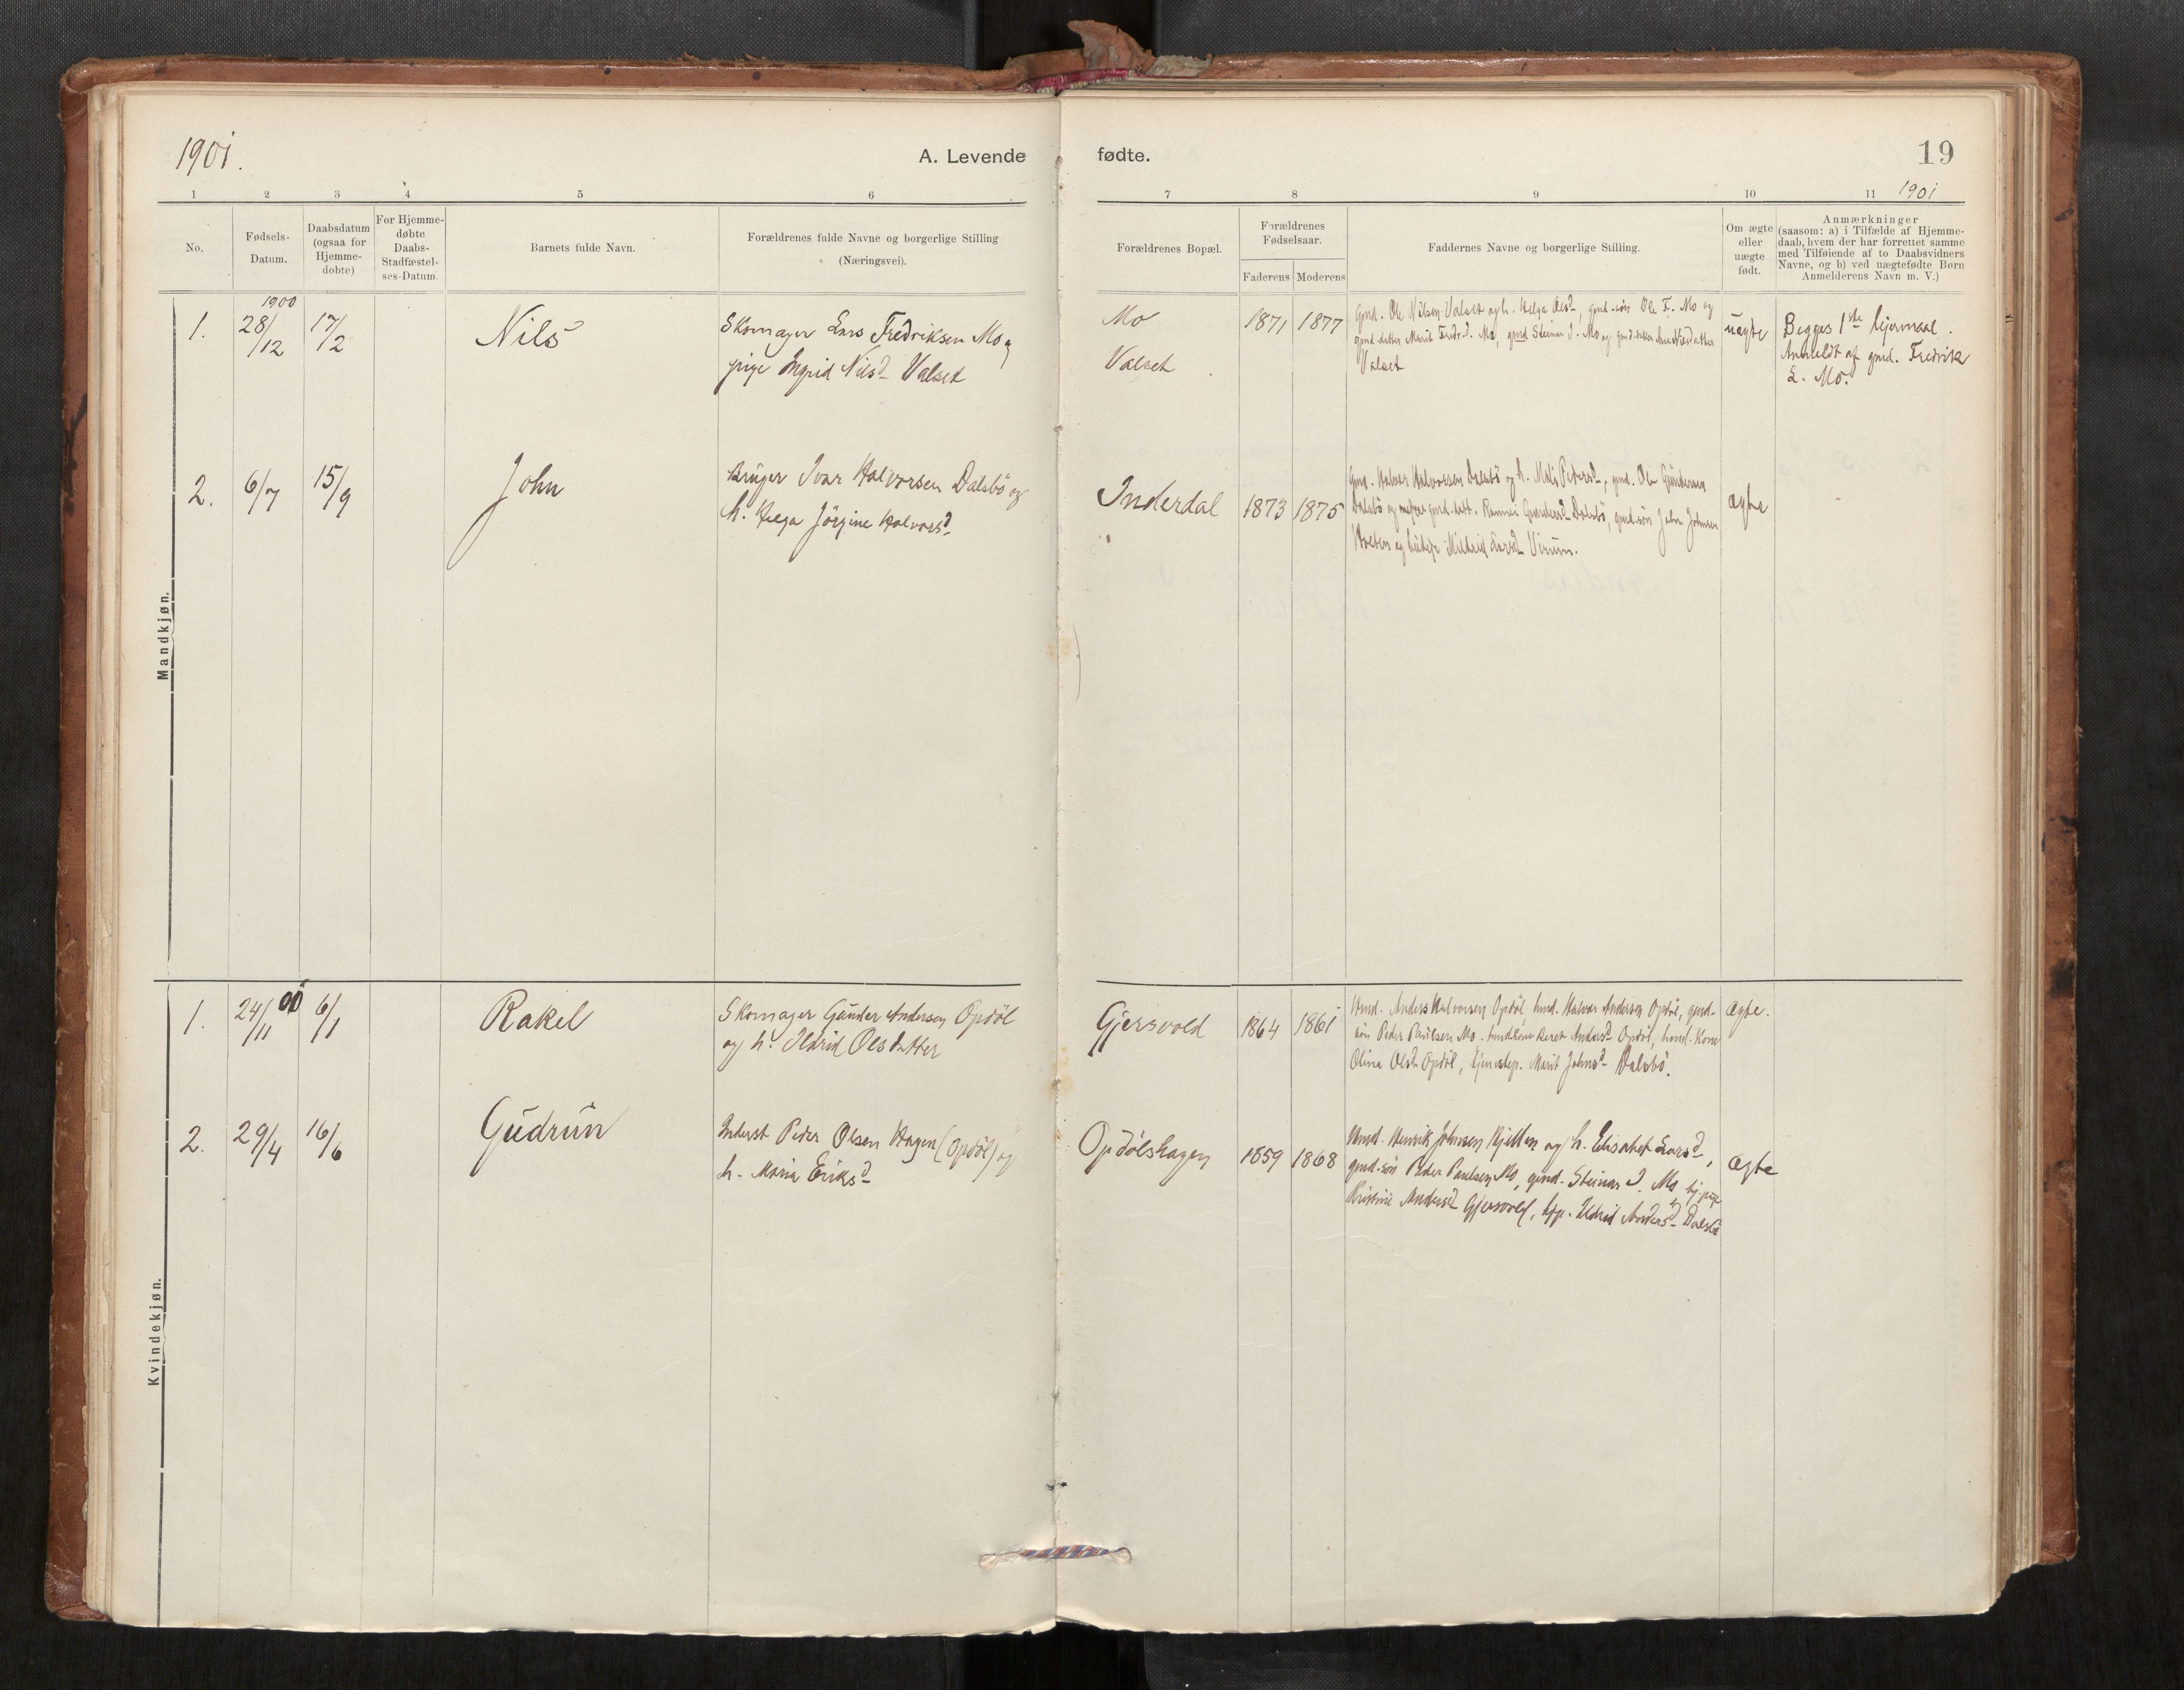 1901.
A. Levende
fødte.
19
1 2 3 4 5 6
7 8 9 10 11 1901
No.
Fødsels-
Datum.
Daabsdatum
(ogsaa for
Hjemme-
døbte)
For Hjemme-
døbte
Daabs-
Stadfæstel-
ses-Datum.
Barnets fulde Navn.
Forældrenes fulde Navne og borgerlige Stilling
(Næringsvei).
Forældrenes Bopæl.
Forældrenes
Fødselsaar.
Faderens Moderens
Faddernes Navne og borgerlige Stilling.
Om ægte
eller
uægte
født.
Anmærkninger
(saasom: a) i Tilfælde af Hjemme-
daab, hvem der har forrettet samme
med Tilføiende af to Daabsvidners
Navne, og b) ved uægtefødte Børn
Anmelderens Navn m. V.)
Mandkjøn.
1. 1900 28/12 17/2 Nils
Skomager Lars Fredriksen Mo og
pige Ingrid Nilsd. Valset
Mo
Valset
1871 1877
Gmd. Ole Nilsen Valset og h. Helga Olsd., gmd.-søn Ole F. Mo og
gmd.-datter Marit Fredr.d. Mo, gmd Steinar J. Mo og gmd.datter Ane Nilsdatter
Valset
uægte
Begges 1ste lejermaal.
Anmeldt af gmd. Fredrik
L. Mo.
2. 6/7 15/9 John
Bruger Ivar Halvorsen Dalsbö og
h. Helga Jörgine Halvorsd.
Inderdal
1873 1875
Gmd. Halvor Halvorsen Dalsbö og h. Mali Pedersd., gmd. Ole Gundersen
Dalsbö og gmd.-datt. Gundersd. Dalsbö, gmd.søn John Johnsen
Mildrid Larsd. Virum.
ægte
Kvindekjøn.
1. 24/11 00 6/1 Rakel
Skomager Gunder Andersen Opdöl
og h. Ildrid Olsdatter
Gjersvold
1864 1861
Hmd. Anders Halvorsen Opdöl, hmd. Halvor Andersen Opdöl, gmd.-
søn Peder Paulsen Mo, hmdkone Beret Andersd. Opdöl, hmd.-kone
Olina Olsd. Opdöl, tjenestep. Marit Johnsd. Dalsbö.
ægte.
2. 29/4 16/6 Gudrun
Inderst Peder Olsen Hagen (Opdöl) og
h. Maria Eriksd.
Opdölshagen
1859 1868
Hmd. Henrik Johnsen Hjellen og h. Elisabet Larsd.,
gmd.-søn Peder Paulsen Mo, gmd. Steinar J. Mo, tj.pige
Kristine Andersd. Gjersvold, tjp. Ildrid Andersd. Dalsbö
ægte